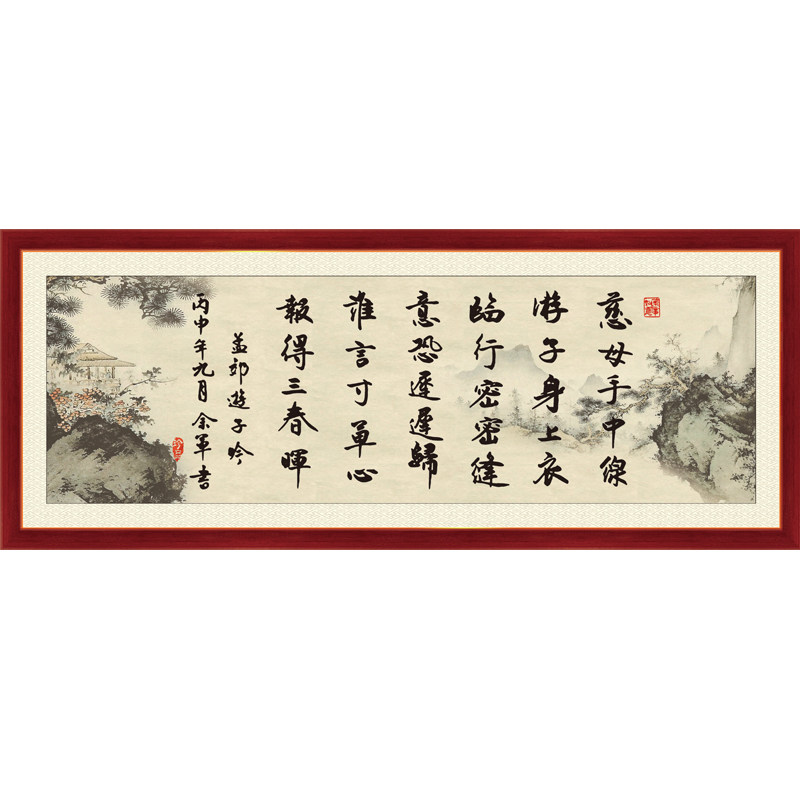 慈母手中線
游子身上衣
臨行密密縫
意恐遲遲歸
誰言寸草心
報得三春暉
孟郊遊子吟
丙申年九月余軍書